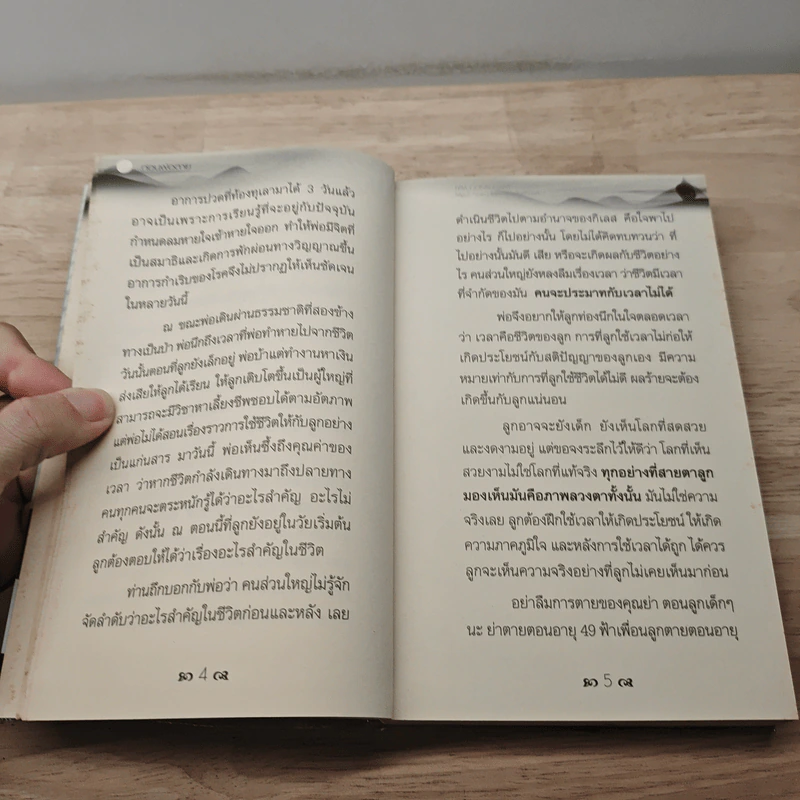 อาการปวดที่ท้องทุเลามาได้ 3 วันแล้ว
อาจเป็นเพราะการเรียนรู้ที่จะอยู่กับปัจจุบัน
กำหนดลมหายใจเข้าหายใจออก ทำให้พ่อมีจิตที่
เป็นสมาธิและเกิดการพักผ่อนทางวิญญาณขึ้น
อาการกำเริบของโรคจึงไม่ปรากฏให้เห็นชัดเจน
ในหลายวันนี้
ณ ขณะพ่อเดินผ่านธรรมชาติที่สองข้าง
ทางเป็นป่า พ่อนึกถึงเวลาที่พ่อทำหายไปจากชีวิต
วันนั้นตอนที่ลูกยังเล็กอยู่ พ่อบ้าแต่ทำงานหาเงิน
ส่งเสียให้ลูกได้เรียน ให้ลูกเติบโตขึ้นเป็นผู้ใหญ่ที่
สามารถจะมีวิชาหาเลี้ยงชีพชอบได้ตามอัตภาพ
แต่พ่อไม่ได้สอนเรื่องราวการใช้ชีวิตให้กับลูกอย่าง
เป็นแก่นสาร มาวันนี้ พ่อเห็นซึ้งถึงคุณค่าของ
เวลา ว่าหากชีวิตกำลังเดินทางมาถึงปลายทาง
คนทุกคนจะตระหนักรู้ได้ว่าอะไรสำคัญ อะไรไม่
สำคัญ ดังนั้น ณ ตอนนี้ที่ลูกยังอยู่ในวัยเริ่มต้น
ลูกต้องตอบให้ได้ว่าเรื่องอะไรสำคัญในชีวิต
ท่านถึกบอกกับพ่อว่า คนส่วนใหญ่ไม่รู้จัก
จัดลำดับว่าอะไรสำคัญในชีวิตก่อนและหลัง เลย
4
ดำเนินชีวิตไปตามอำนาจของกิเลส คือใจพาไป
อย่างไร ก็ไปอย่างนั้น โดยไม่ได้คิดทบทวนว่า ที่
ไปอย่างนั้นมันดี เสีย หรือจะเกิดผลกับชีวิตอย่าง
ไร คนส่วนใหญ่ยังหลงลืมเรื่องเวลา ว่าชีวิตมีเวลา
ที่จำกัดของมัน คนจะประมาทกับเวลาไม่ได้
พ่อจึงอยากให้ลูกท่องนึกในใจตลอดเวลา
ว่า เวลาคือชีวิตของลูก การที่ลูกใช้เวลาไม่ก่อให้
เกิดประโยชน์กับสติปัญญาของลูกเอง มีความ
หมายเท่ากับการที่ลูกใช้ชีวิตได้ไม่ดี ผลร้ายจะต้อง
เกิดขึ้นกับลูกแน่นอน
ลูกอาจจะยังเด็ก ยังเห็นโลกที่สดสวย
และงดงามอยู่ แต่ขอจงระลึกไว้ให้ดีว่า โลกที่เห็น
สวยงามไม่ใช่โลกที่แท้จริง ทุกอย่างที่สายตาลูก
มองเห็นมันคือภาพลวงตาทั้งนั้น มันไม่ใช่ความ
จริงเลย ลูกต้องฝึกใช้เวลาให้เกิดประโยชน์ ให้เกิด
ความภาคภูมิใจ และหลังการใช้เวลาได้ถูก ได้ควร
ลูกจะเห็นความจริงอย่างที่ลูกไม่เคยเห็นมาก่อน
อย่าลืมการตายของคุณย่า ตอนลูกเด็กๆ
นะ ย่าตายตอนอายุ 49 ฟ้าเพื่อนลูกตายตอนอายุ
5